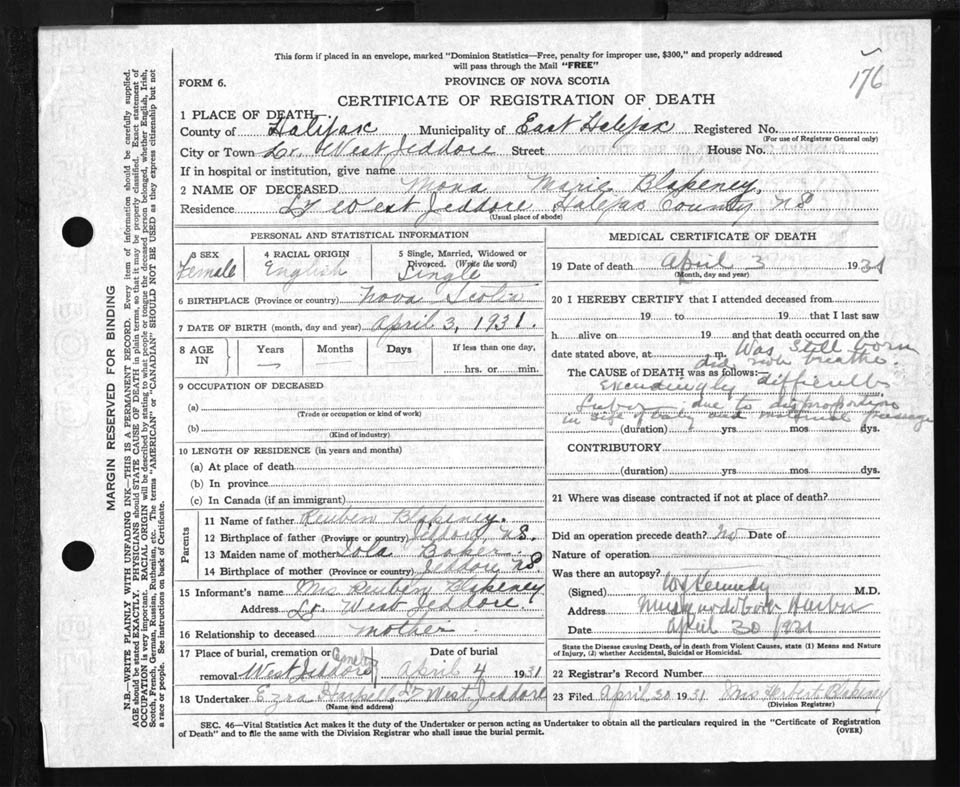 This form if placed in an envelope, marked "Dominion Statistics—Free, penalty for improper use, $300," and properly addressed
will pass through the Mail "FREE"
176
FORM 6.
PROVINCE OF NOVA SCOTIA
CERTIFICATE OF REGISTRATION OF DEATH
1 PLACE OF DEATH
County of Halifax Municipality of East Halifax Registered No.
(For use of Registrar General only)
City or Town Lr. West Jeddore Street House No.
If in hospital or institution, give name
2 NAME OF DECEASED Mona Marie Blakeney.
Residence Lr West Jeddore Halifax County NS
(Usual place of abode)
PERSONAL AND STATISTICAL INFORMATION
3 SEX Female
4 RACIAL ORIGIN English
5 Single, Married, Widowed or Divorced. (Write the word) Single
6 BIRTHPLACE (Province or country) Nova Scotia
7 DATE OF BIRTH (month, day and year) April 3, 1931.
8 AGE IN Years Months Days If less than one day,
hrs. or min.
9 OCCUPATION OF DECEASED
(a)
(Trade or occupation or kind of work)
(b)
(Kind of industry)
10 LENGTH OF RESIDENCE (in years and months)
(a) At place of death
(b) In province
(c) In Canada (if an immigrant)
Parents
11 Name of father Reuben Blakeney.
12 Birthplace of father (Province or country) Jeddore, NS.
13 Maiden name of mother Iola Baker
14 Birthplace of mother (Province or country) Jeddore NS
15 Informant's name Mrs Reuben Blakeney
Address Lr. West Jeddore.
16 Relationship to deceased mother
17 Place of burial, cremation or removal West Jeddore Date of burial April 4 1931
18 Undertaker Ezra Lr West Jeddore
(Name and address)
MEDICAL CERTIFICATE OF DEATH
19 Date of death April 3 1931
(Month, day and year)
20 I HEREBY CERTIFY that I attended deceased from
19 to 19 that I last saw
h alive on 19 and that death occurred on the
date stated above, at m. Was still born
did not breathe.
The CAUSE of DEATH was as follows:—
Exceedingly difficult
Labor due to disproportion
in size of baby and maternal passage
(duration) yrs mos dys.
CONTRIBUTORY
(duration) yrs mos dys.
21 Where was disease contracted if not at place of death?
Did an operation precede death? No Date of
Nature of operation
Was there an autopsy?
(Signed) Kennedy M.D.
Address Musquodoboit Harbor
Date April 30 1931
State the Disease causing Death, or in death from Violent Causes, state (1) Means and Nature
of Injury, (2) whether Accidental, Suicidal or Homicidal.
22 Registrar's Record Number
23 Filed April 30 1931 Mrs Herbert Blakeney
(Division Registrar)
SEC. 46—Vital Statistics Act makes it the duty of the Undertaker or person acting as Undertaker to obtain all the particulars required in the "Certificate of Registration
of Death" and to file the same with the Division Registrar who shall issue the burial permit.
(OVER)
MARGIN RESERVED FOR BINDING
N.B.—WRITE PLAINLY WITH UNFADING INK—THIS IS A PERMANENT RECORD. Every item of information should be carefully supplied.
AGE should be stated EXACTLY. PHYSICIANS should STATE CAUSE OF DEATH in plain terms, so that it may be properly classified. Exact statement of
OCCUPATION is very important. RACIAL ORIGIN will be described by stating to what people or tongue the deceased person belonged, whether English, Irish,
Scotch, French, German, Russian, Ruthenian, etc. The terms "AMERICAN" or "CANADIAN" SHOULD NOT BE USED as they express citizenship but not
a race or people. See instructions on back of Certificate.